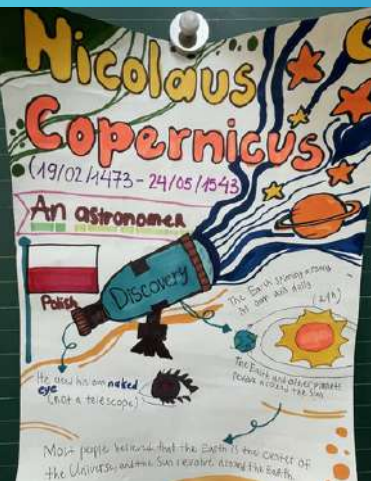 Nicolaus
Copernicus
(19/02/1473 - 24/05/1543
An astronomer
Polish
Discovery
The Earth
its own axis daily
(24h)
The Earth and other planets
revolve around the Sun
He used his own naked
eye
(not a telescope)
Most people believed that the Earth is the center of
the Universe, and the Sun revolve around the Earth.